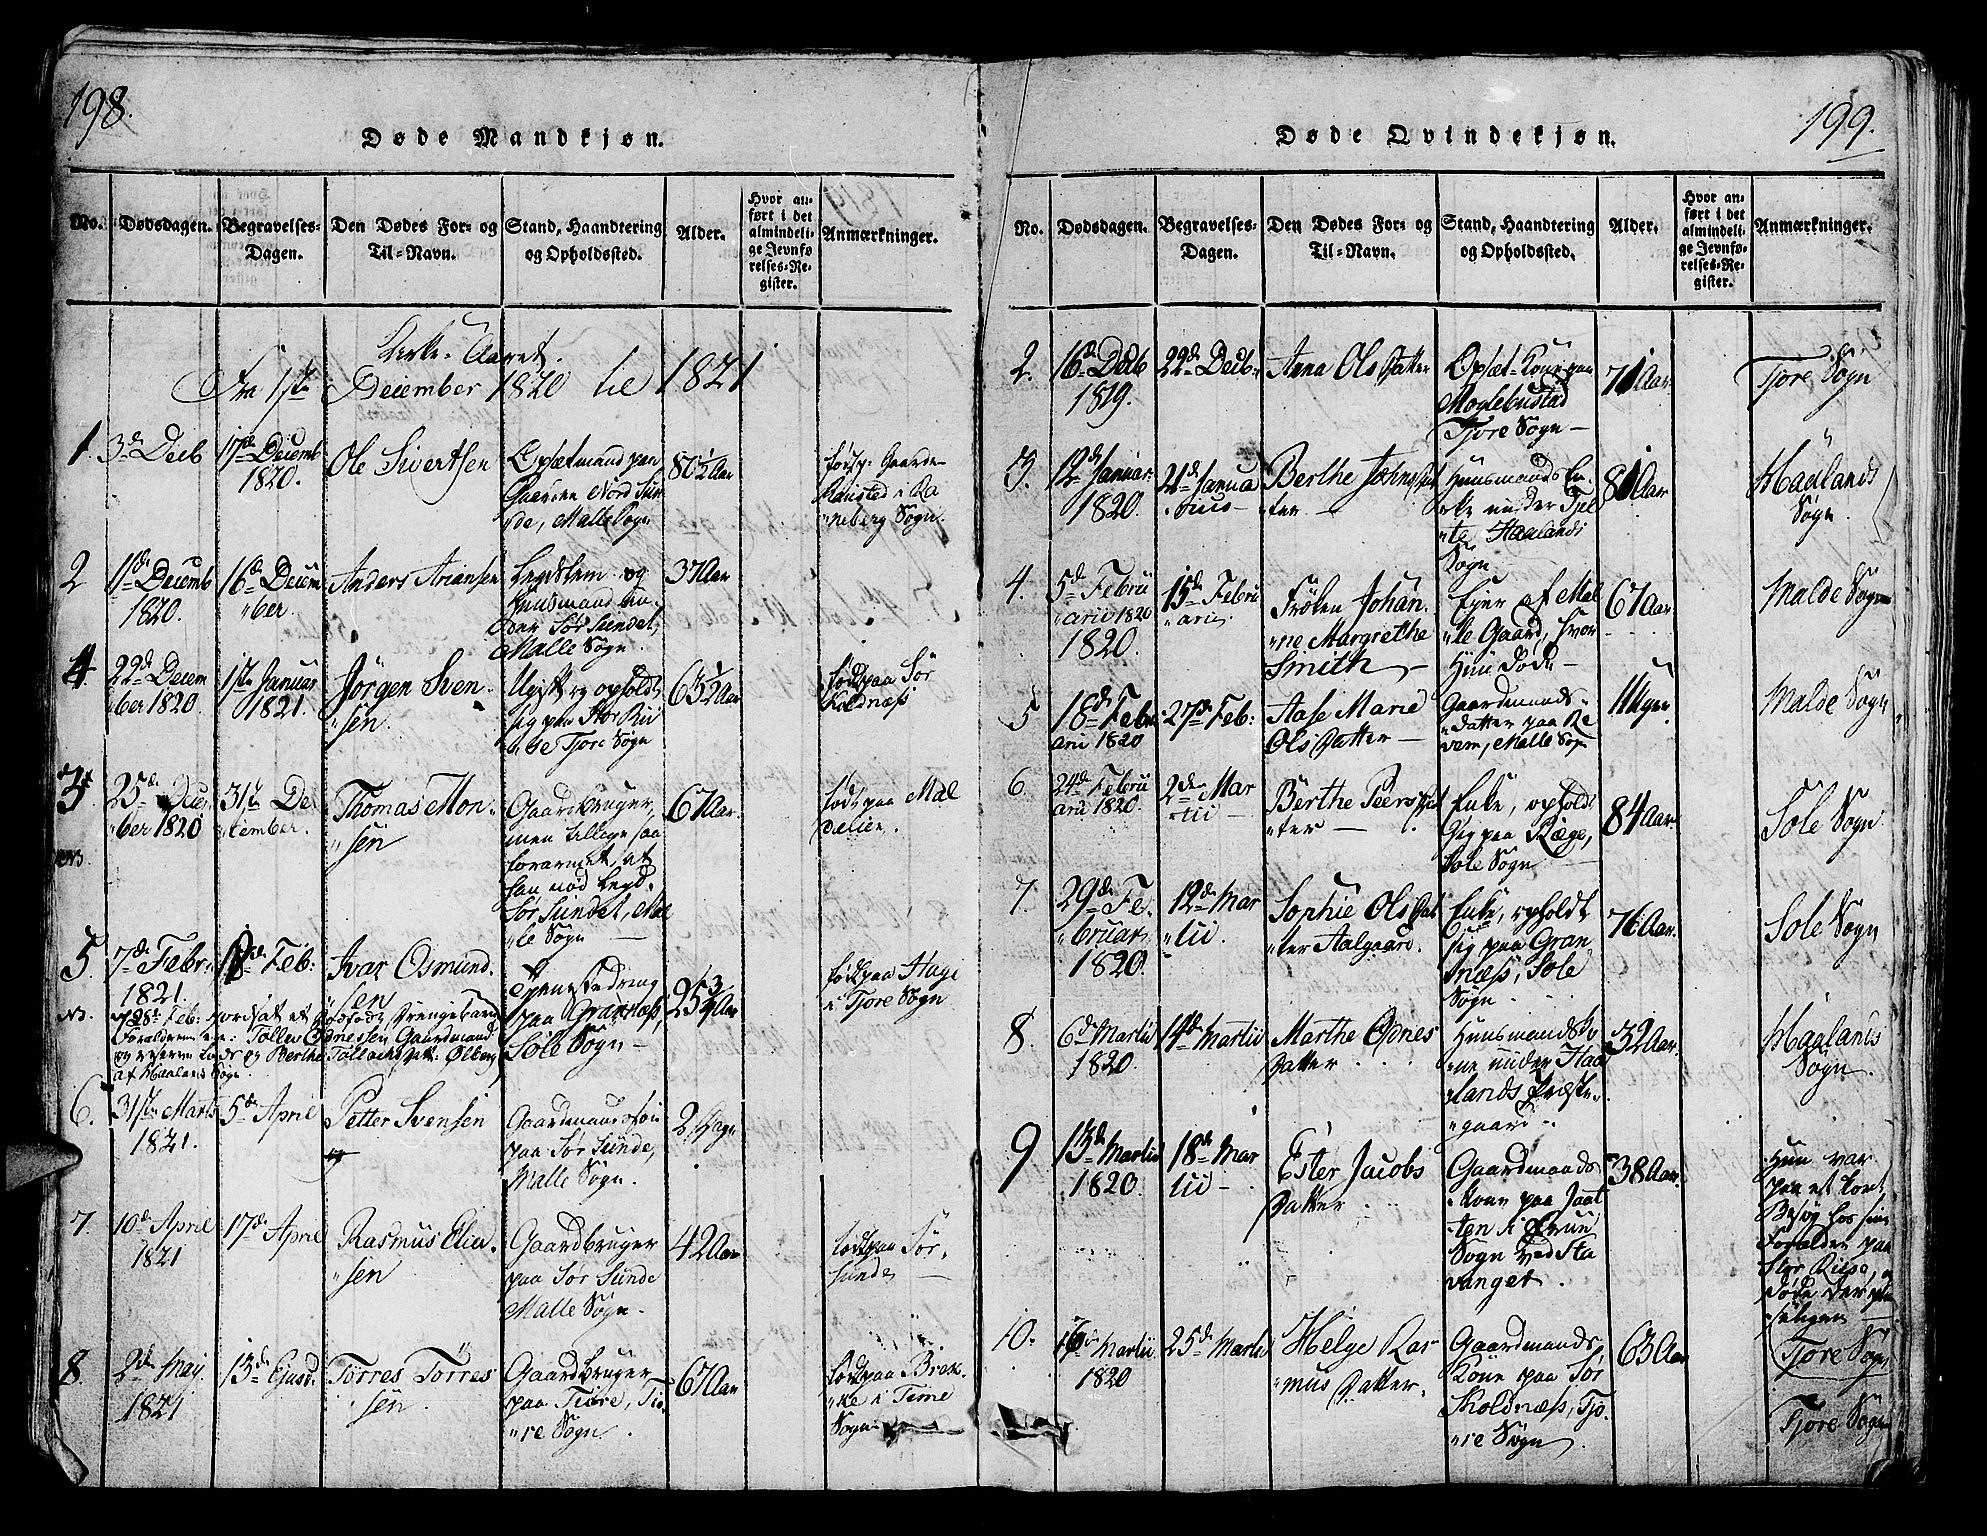 198.
Døde Mandkjøn.
No.
Dødsdagen.
Begravelses-
Dagen.
Den Dødes For- og
Til-Navn.
Stand, Haandtering
og Opholdssted.
Alder.
Hvor an-
ført i det
almindeli-
ge Jevnfø-
relses-Re-
gister.
Anmærkninger.
Kirke-Aaret.
Fra 1ste December 1820 til 1821
1.
3de Decb
17de Decemb
1820.
Ole Sivertsen
Opsætmand paa
Gaarden Nord Sun
de, Malle Sogn
80½ Aar
født p: Gaarden
i Ra
neberg Sogn.
2
11de Decemb
1820.
16de Decem
ber.
Anders Ariansen
Legdslem og
Huusmand un-
der Sør Sundet,
Malle Sogn.
37 Aar
4.
22de Decem
ber 1820.
1ste Januar
1821.
Jörgen Sven-
sen.
Ugift og opholdt
sig paa Stor Rii
se Tjore Sogn
63½ Aar
født paa Sør
Kolnæss
3.
25de Decem
ber 1820
31te De
cember.
Thomas Mon-
sen
Gaardbruger,
men tillige saa
forarmet, at
han nød Legd.
Sør Sundet, Mal
le Sogn
67 Aar.
født paa Mæl
5
7de Febr:
1821.
Feb:
Ivar Osmund-
sen
Tjenestedreng
paa Grannæss,
Sole Sogn
25¾ Aar
født paa Haga
i Tjore Sogn
NB.
28de Feb:
Forældrene ere: Tollev Gaardmand
og Berthe
af Haalands Sogn.
6.
31te Marts
1821.
5de April
Petter Svensen
Gaardmands søn
paa Sør Sunde,
Malle Sogn.
2 Dage
7.
10de April
1821
17de April
Rasmus Elia-
sen
Gaardbruger
paa Sør Sunde
Malle Sogn.
42 Aar
født paa Sør-
sunde
8.
2de May
1821
13de Ejusd.
Törres Törres
sen.
Gaardbruger
paa Tiore, Tio-
re Sogn.
67 Aar
født paa Brek-
ke i Time
Sogn.
199.
Døde Qvindekjøn.
No.
Dødsdagen.
Begravelses-
Dagen.
Den Dødes For- og
Til-Navn.
Stand, Haandtering
og Opholdssted.
Alder.
Hvor an-
ført i det
almindeli-
ge Jevnfø-
relses-Re-
gister.
Anmærkninger.
2.
16de Decb
1819.
22de Decb.
Anna Ols Datter
Opsæt-Kone paa
Moglebustad
Tjore Sogn
71 Aar.
Tjore Sogn
3.
12de Januar.
1820.
21de Janua
rius
Berthe Johns Dat
ter
Huusmands En-
ke under Tjel
te Haalands
Sogn
81 Aar
Haalands
Sogn.
4.
5de Febru
arii 1820
1820.
15de Febru
arii
Frölen Johan-
ne Margrethe
Smith
Ejer af Mal
le Gaard, hvor
Hun døde
67 Aar
Malde Sogn
5
18de Febr.
arii 1820
27de Feb:
Aase Marie
Ols Datter
Gaardmands-
datter paa Re
vem, Malle Sogn
11 Uger
Malde Sogn
6
24de Febru
arii 1820.
2de Mar
tii
Berthe Peers Dat
ter
Enke, opholdt
sig paa Ræge,
Sole Sogn
84 Aar.
Sole Sogn.
7.
29de Fe-
bruar
1820.
12de Mar
tii
Sophie Ols Dat
ter Aalgaard.
Enke, opholdt
sig paa Gran
næss, Sole
Sogn.
76 Aar.
Sole Sogn
8.
6de Martii
1820.
14de Martii
Marthe
Datter.
Huusmands Ko
ne under Haa
lands Præste-
gaard.
32 Aar.
Haalands
Sogn.
9
13de Martii
1820.
18de Mar
tii
Ester Jacobs
Datter
Gaardmands
kone paa Jaat
ten i Frue
Sogn ved Sta
vanger.
38 Aar.
Hun var
paa et kort
Besøg hos sine
Forældre paa
Stor Riise, og
døde der
Tjore Sogn
10.
Martii
1820
25de Martii
Helge Ras
mus Datter.
Gaardmands
Kone paa Sør
Kolnæss, Tjo-
re Sogn.
63 Aar
Tjore Sogn